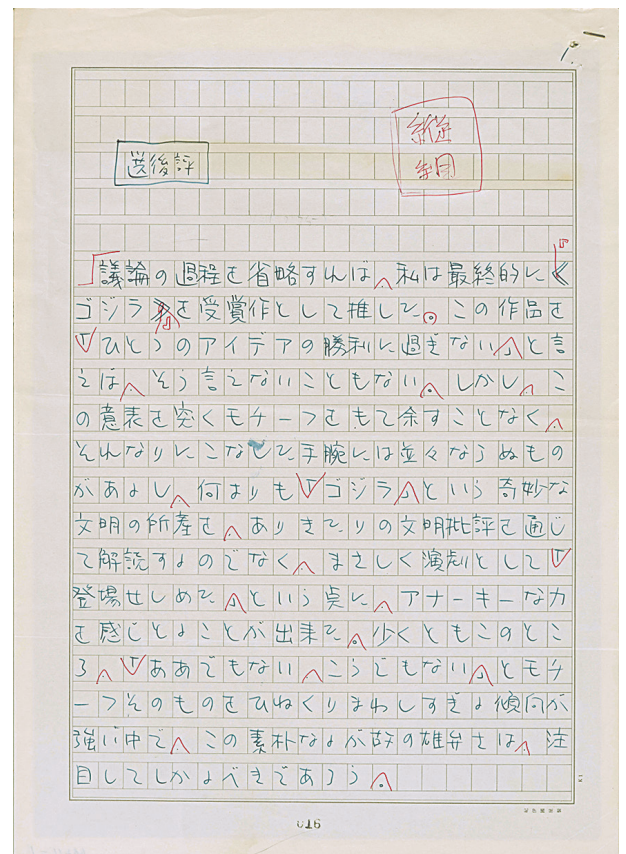 縦組
選後評
議論の過程を省略すれば、私は最終的に『
ゴジラ』を受賞作として推した。この作品を
「ひとつのアイデアの勝利に過ぎない」と言
えば、そう言えないこともない。しかし、こ
の意表を突くモチーフをもて余すことなく、
それなりにこなした手腕には並々ならぬもの
があるし、何よりも「ゴジラ」という奇妙な
文明の所産を、ありきたりの文明批評を通じ
て解読するのでなく、まさしく演劇として「
登場せしめた」という点に、アナーキーな力
を感じとることが出来た。少くともこのとこ
ろ、「ああでもない、こうでもない」とモチ
ーフそのものをひねくりまわしすぎる傾向が
強い中で、この素朴なるが故の雄弁さは、注
目してしかるべきであろう。
016